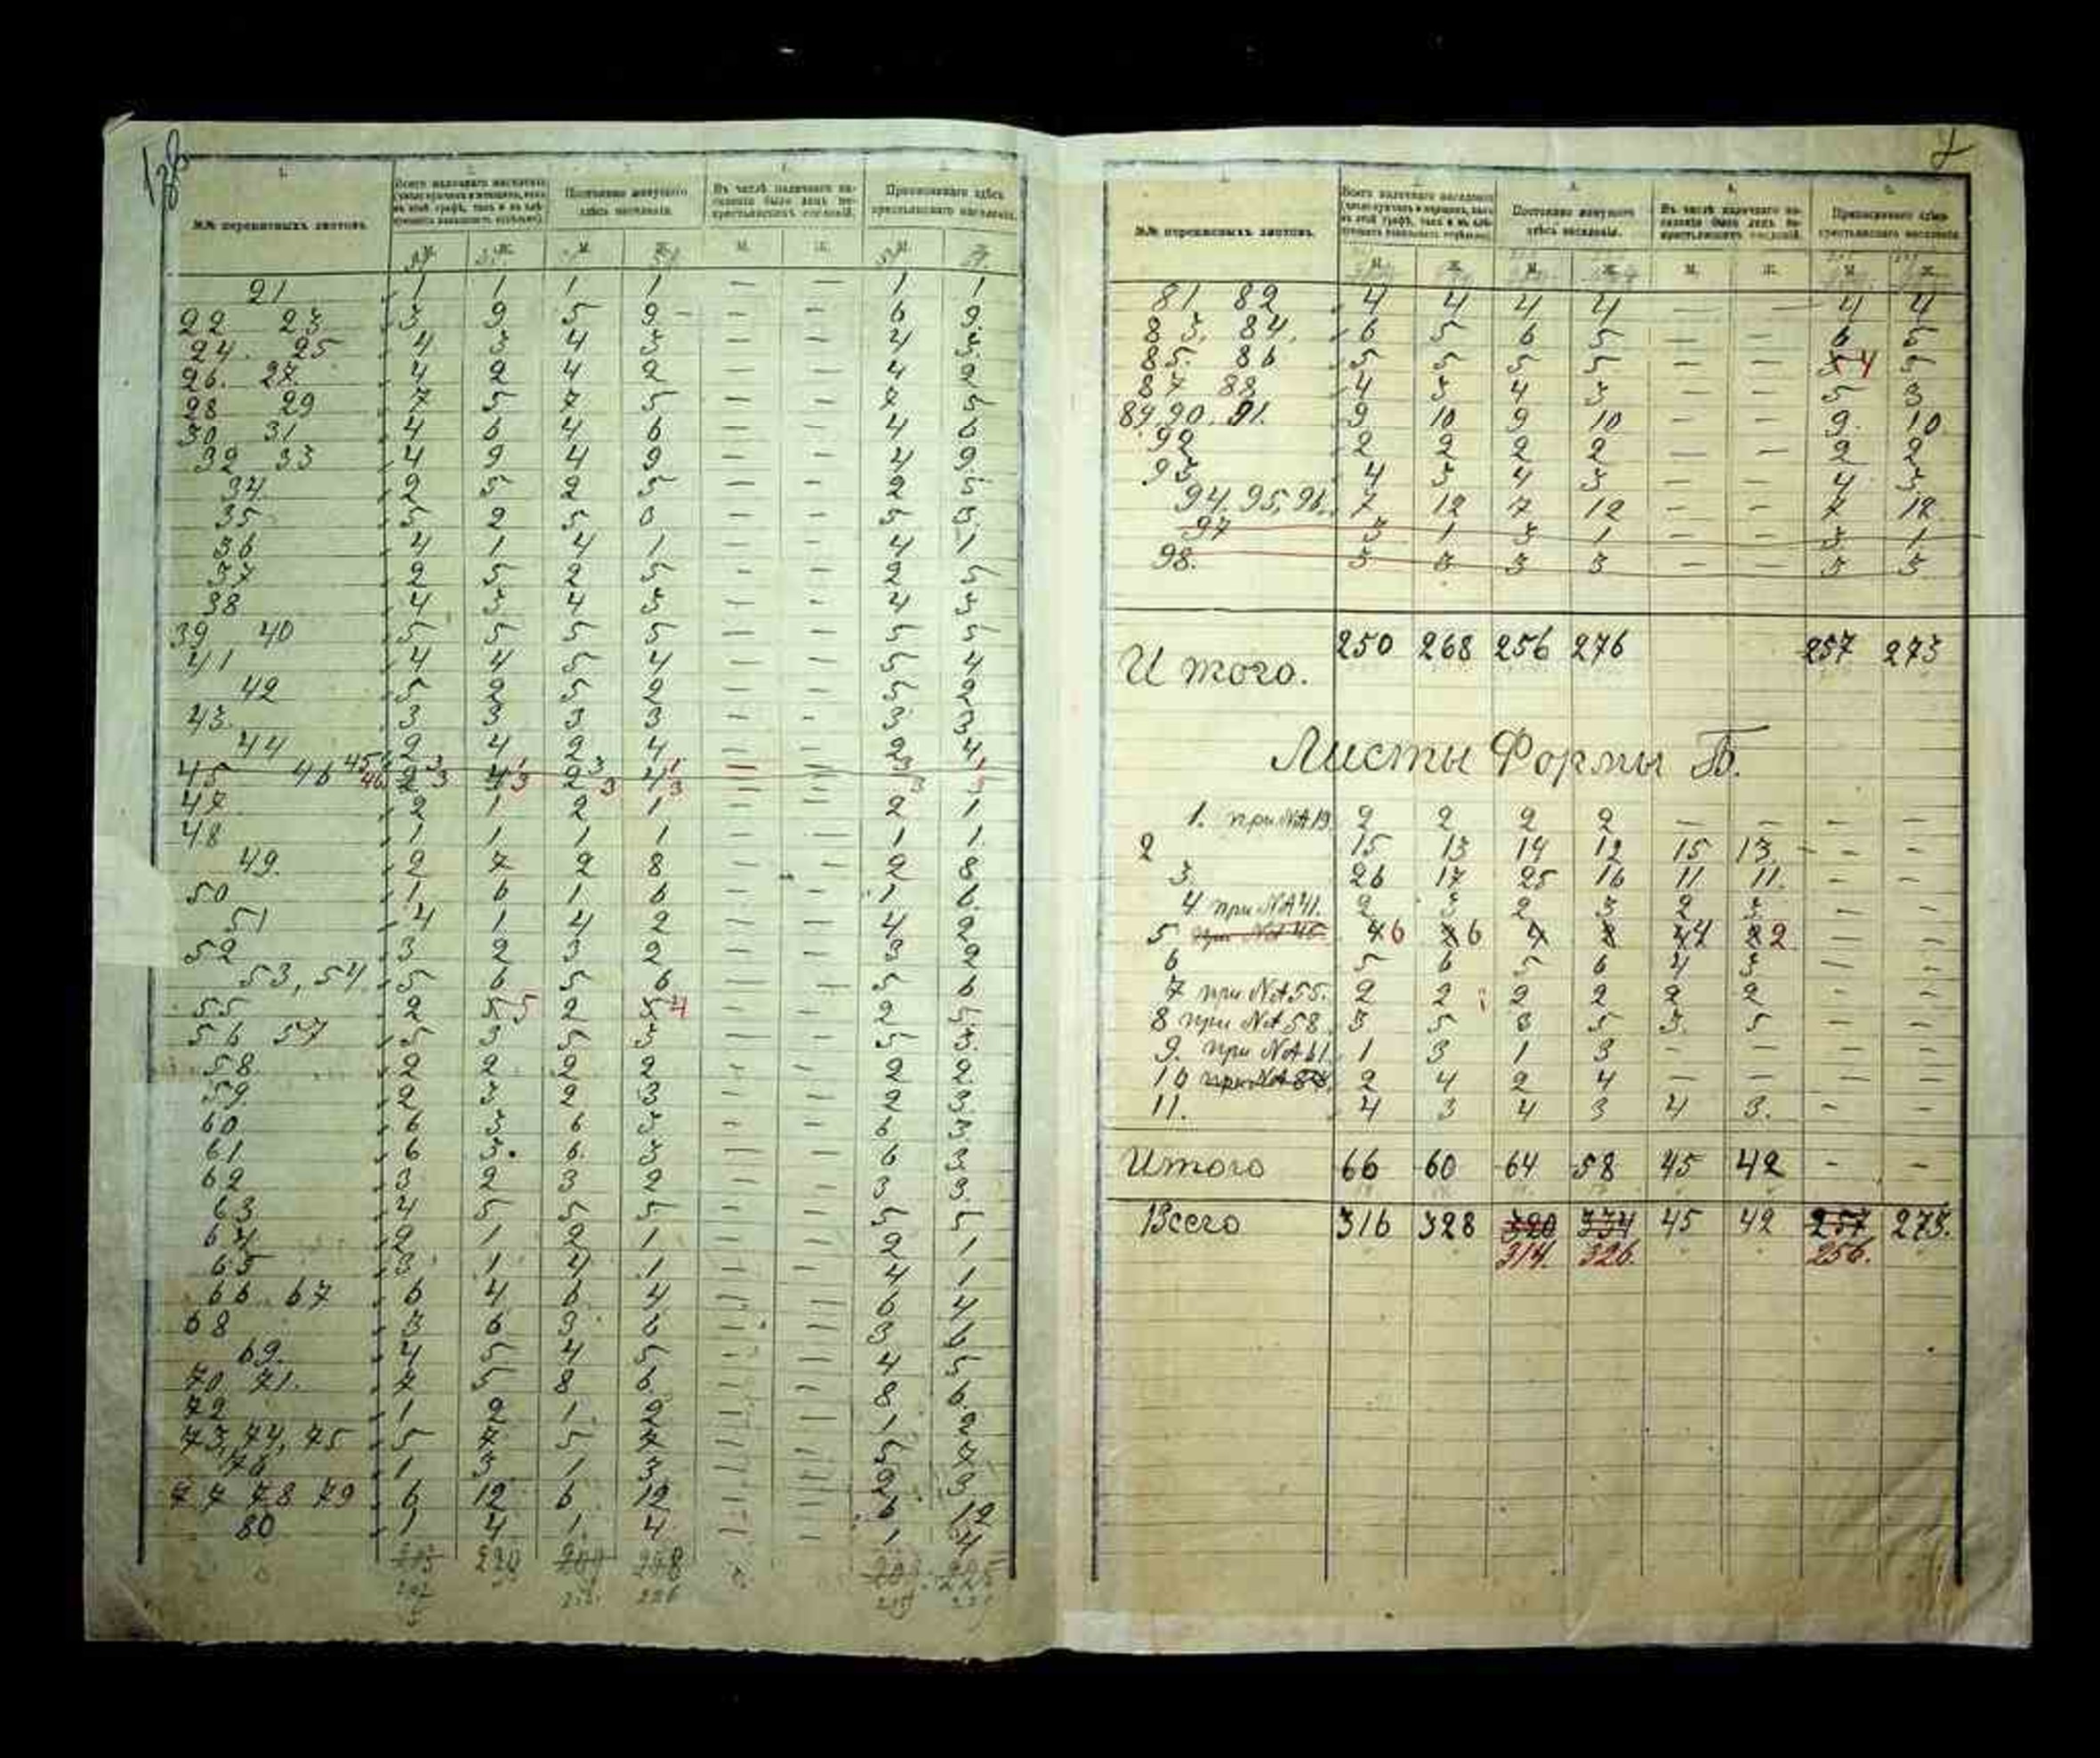 1.
№№ переписныхъ листовъ.
Всего наличнаго населенія
Постоянно живущаго здѣсь населенія.
Въ числѣ наличнаго населенія было лицъ некрестьянскихъ сословій.
Приписаннаго здѣсь крестьянскаго населенія.
М. Ж. М. Ж. М. Ж. М. Ж.
21 1 1 1 1 — — 1 1
22 23 3 9 5 9 — — 6 9
24. 25 4 3 4 3 — — 4 3
26. 27. 4 2 4 2 — — 4 2
28 29 7 5 7 5 — — 7 5
30 31 4 6 4 6 — — 4 6
32 33 4 9 4 9 — — 4 9
34 2 5 2 5 — — 2 5
35 5 2 5 3 — — 5 3
36 4 1 4 1 — — 4 1
37 2 5 2 5 — — 2 5
38 4 3 4 3 — — 4 3
39 40 5 5 5 5 — — 5 5
41 4 4 5 4 — — 5 4
42 5 2 5 2 — — 5 2
43. 3 3 3 3 — — 3 3
44 2 4 2 4 — — 2 4
45 46
47 2 1 2 1 — — 2 1
48 1 1 1 1 — — 1 1
49. 2 7 2 8 — — 2 8
50 1 6 1 6 — — 1 6
51 4 1 4 2 — — 4 2
52 3 2 3 2 — — 3 2
53, 54 5 6 5 6 — — 5 6
55 2 5 2 4 — — 2
56 57 5 3 5 3 — — 5 3
58. 2 2 2 2 — — 2 2
59. 2 3 2 3 — — 2 3
60 6 3 6 3 — — 6 3
61. 6 3 6 3 — — 6 3
62 3 2 3 2 — — 3 3
63 4 5 5 5 — — 5 5
64 2 1 2 1 — — 2 1
65 3 1 4 1 — — 4 1
66 67 6 4 6 4 — — 6 4
68 3 6 3 6 — — 3 6
69. 4 5 4 5 — — 4 5
70 71. 7 5 8 6 — — 8 6
72 1 2 1 2 — — 1 2
73, 74, 75 5 7 5 7 — — 5 7
76 1 3 1 3 — — 2 3
77 78 79 6 12 6 12 — — 6 12
80 1 4 1 4 — — 1 4
7
№№ переписныхъ листовъ.
Всего наличнаго населенія
Постоянно живущаго здѣсь населенія.
Въ числѣ наличнаго населенія было лицъ некрестьянскихъ сословій.
Приписаннаго здѣсь крестьянскаго населенія
М. Ж. М. Ж. М. Ж. М. Ж.
81 82 4 4 4 4 — — 4 4
83. 84. 6 5 6 5 — — 6 5
85. 86 5 5 5 5 — — 5 4 5
87 88 4 3 4 3 — — 5 3
89, 90, 91. 9 10 9 10 — — 9. 10
92 2 2 2 2 — — 2 2
93 4 3 4 3 — — 4 3
94. 95, 96. 7 12 7 12 — — 7 12
97 3 1 3 1 — — 3 1
98. 3 3 3 3 — — 3 3
Итого. 250 268 256 276 257 273
Листы Формы Б.
1. при №А 19. 2 2 2 2 — — — —
2 15 13 14 12 15 13. — —
3. 26 17 25 16 11 11. — —
4 при №А 41. 2 3 2 3 2 3. — —
5 6 6 4 2 — —
6 5 6 5 6 4 3 — —
7 при №А 55. 2 2 2 2 2 2 — —
8 при №А 58. 3 5 3 5 3. 5 — —
9. при №А 61. 1 3 1 3 — — — —
10 2 4 2 4 — — — —
11. 4 3 4 3 4 3. — —
Итого 66 60 64 58 45 42 — —
Всего 316 328 320 334 45 42 257 273.
314. 326. 256.